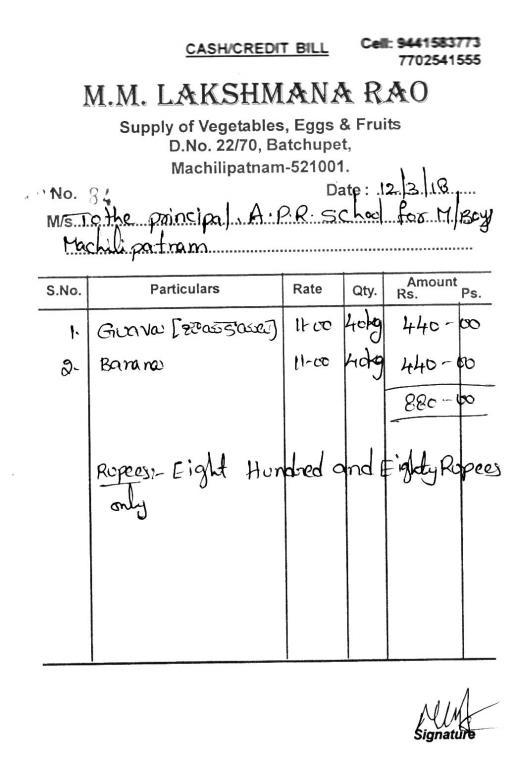 CASH/CREDIT BILL
Cell: 9441583773
7702541555
M.M. LAKSHMANA RAO
Supply of Vegetables, Eggs & Fruits
D.No. 22/70, Batchupet,
Machilipatnam-521001.
No. 84 Date : 12/3/18
M/s. To the principal. A.P.R. School for M/Boys
Machilipatnam
S.No. Particulars Rate Qty. Amount Rs. Ps.
1. Guava 11-00 40kg 440-00
2- Banana 11-00 40kg 440-00
880-00
Rupees:- Eight Hundred and Eighty Rupees
only
Signature